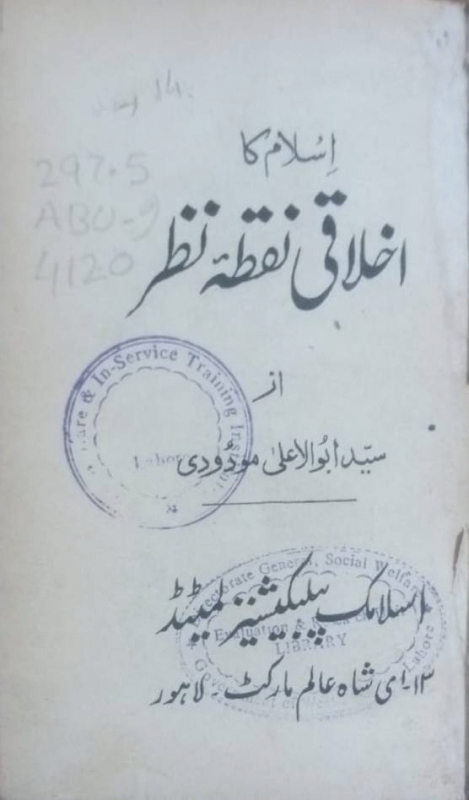 14.
297.5
ABU-9
4120
اِسلام کا
اخلاقی نقطۂ نظر
از
سیّد ابُو الاعلیٰ مودُودی
& In-Service Training
Lahore
اسلامک پبلیکیشنز لمیٹڈ
۱۳-ای شاہ عالم مارکٹ۔ لاہور
Directorate General, Social Welfare
Evaluation &
LIBRARY
Lahore
Government of